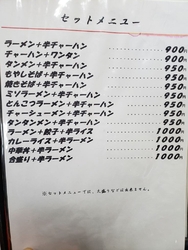 セットメニュー
ラーメン+半チャーハン 900円
チャーハン+ワンタン 950円
タンメン+半チャーハン 950円
もやしそば+半チャーハン 950円
焼きそば+半チャーハン 950円
ミソラーメン+半チャーハン 950円
とんこつラーメン+半チャーハン 950円
チャーシューメン+半チャーハン 950円
タンタンメン+半チャーハン 950円
ラーメン+餃子+半ライス 1000円
カレーライス+半ラーメン 1000円
中華丼+半ラーメン 1000円
合盛り+半ラーメン 1000円
※セットメニューでは、大盛りなどは出来ません。